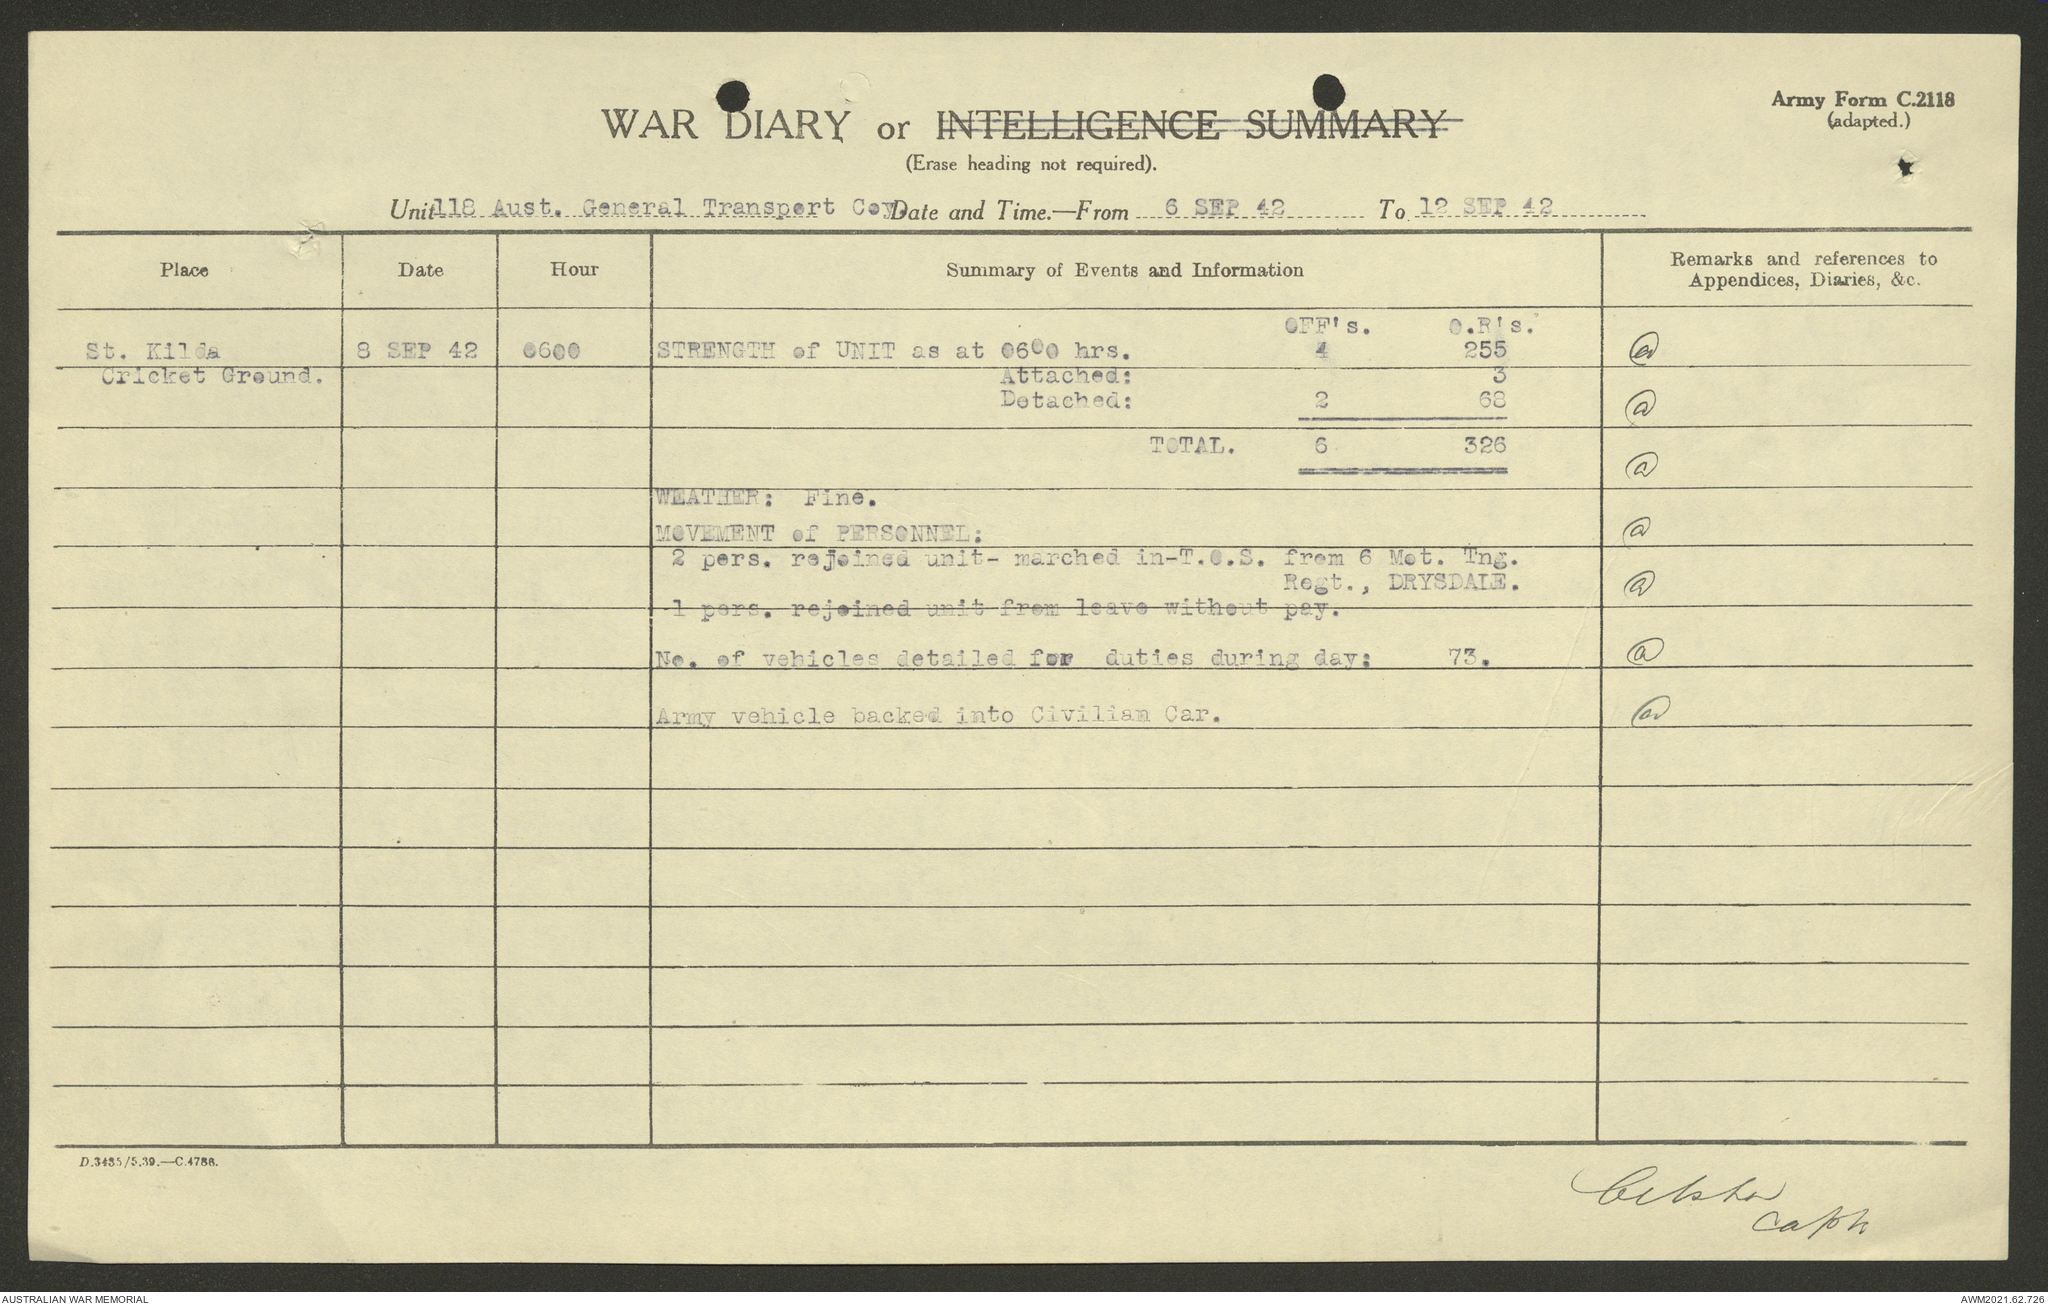 WAR DIARY or INTELLIGENCE SUMMARY
Army Form C.2118
(adapted.)
(Erase heading not required).
Unit 118 Aust. General Transport Coy. Date and Time.—From 6 SEP 42 To 12 SEP 42
Place Date Hour Summary of Events and Information Remarks and references to
Appendices, Diaries, &c.
OFF's. O.R's.
St. Kilda 8 SEP 42 0600 STRENGTH of UNIT as at 0600 hrs. 4 255
Cricket Ground. Attached: 3
Detached: 2 68
TOTAL. 6 326
WEATHER: Fine.
MOVEMENT of PERSONNEL:
2 pers. rejoined unit- marched in-T.O.S. from 6 Mot. Tng.
Regt., DRYSDALE.
1 pers. rejoined unit from leave without pay.
No. of vehicles detailed for duties during day: 73.
Army vehicle backed into Civilian Car.
D.3435/5.39.—C.4786.
Capt
AUSTRALIAN WAR MEMORIAL
AWM2021.62.726